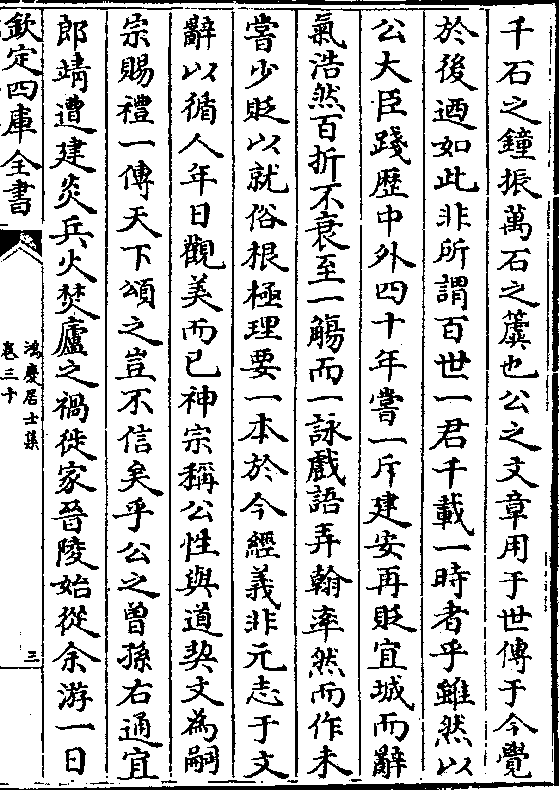 千石之鐘振萬石之簴也公之文章用于世傳于今覺
於後迺如此非所謂百世一君千載一時者乎雖然以
公大臣踐歷中外四十年嘗一斥建安再貶宜城而辭
氣浩然百折不衰至一觴而一詠戲語弄翰率然而作未
嘗少貶以就俗根極理要一本於今經義非元志于文
辭以循人年日觀美而已神宗稱公性與道契文為嗣
宗賜禮一傳天下頌之豈不信矣乎公之曽孫右通宜
郎靖遭建炎兵火焚廬之禍徙家晉陵始從余游一日
欽定四庫全書
鴻慶居士集
卷三十
三